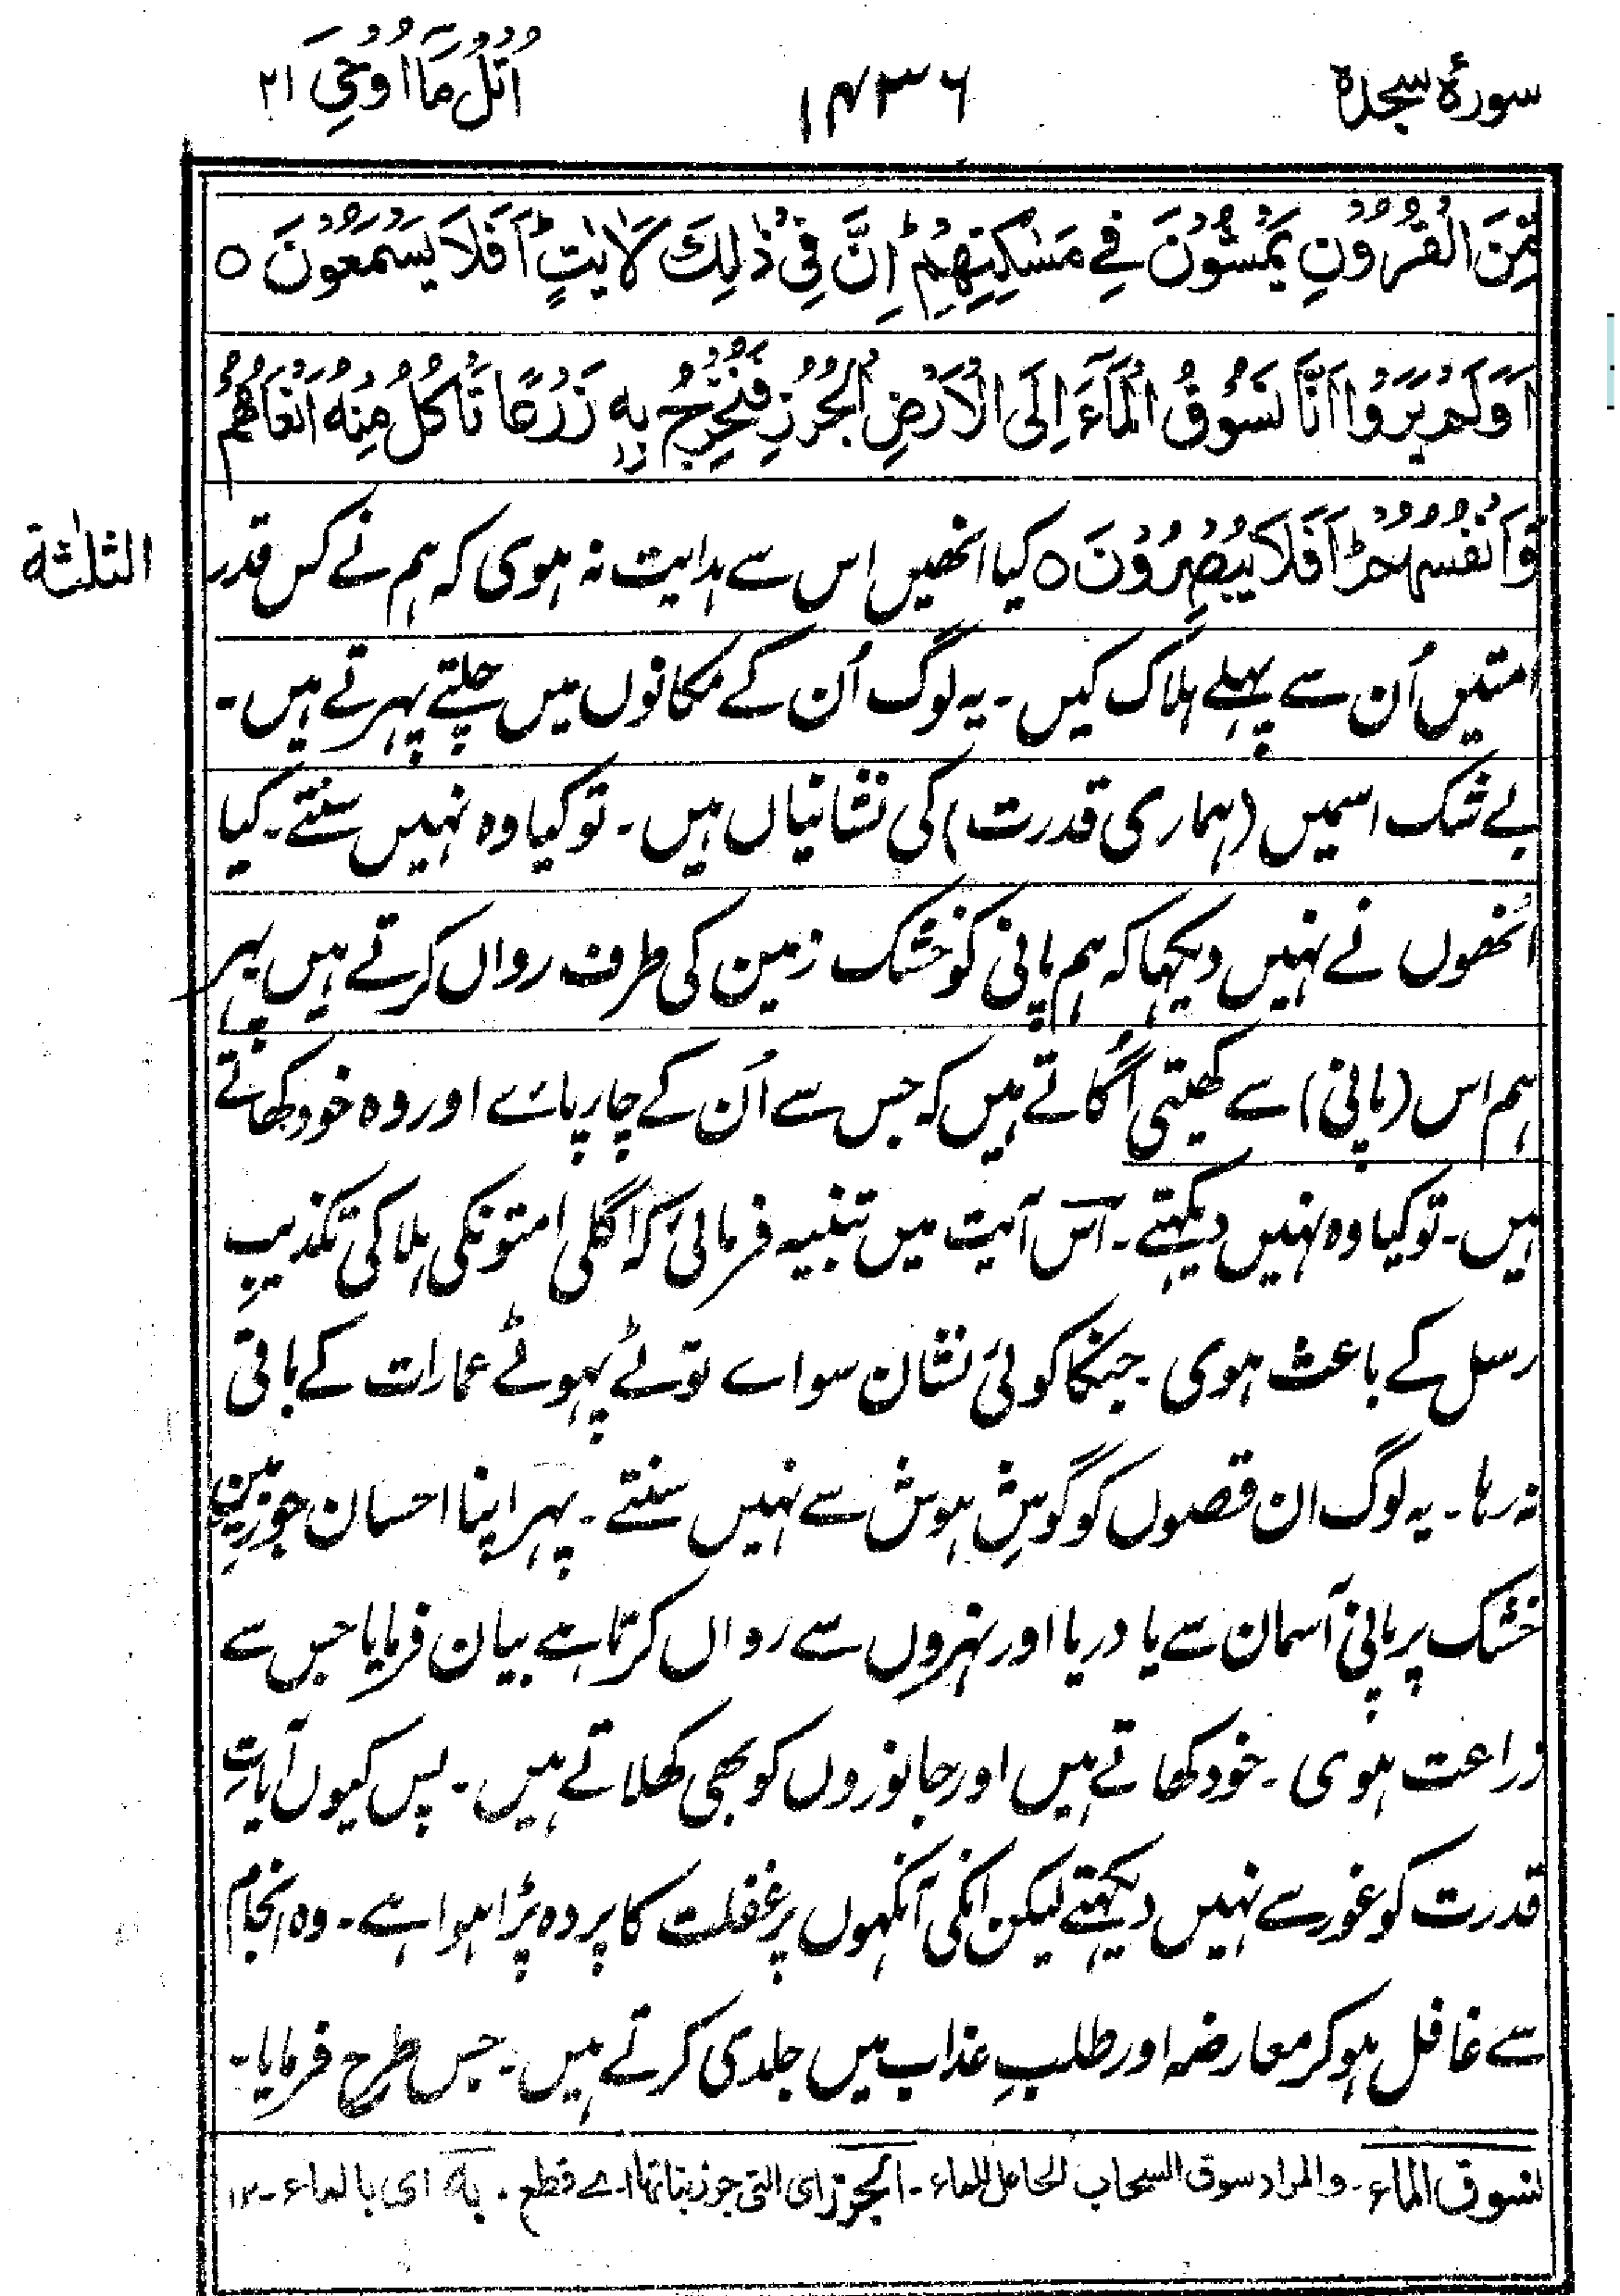 سورۂ سجدہ
۱۴۳۶
اُتْلُ مَآ اُوْحِیَ ۲۱
مِّنَ الْقُرُوْنِ یَمْشُوْنَ فِیْ مَسٰکِنِهِمْ ؕ اِنَّ فِیْ ذٰلِكَ لَاٰیٰتٍ ؕ اَفَلَا یَسْمَعُوْنَ ○
اَوَلَمْ یَرَوْا اَنَّا نَسُوْقُ الْمَآءَ اِلَی الْاَرْضِ الْجُرُزِ فَنُخْرِجُ بِهٖ زَرْعًا تَاْکُلُ مِنْهُ اَنْعَامُهُمْ
وَاَنْفُسُهُمْ ؕ اَفَلَا یُبْصِرُوْنَ ○ کیا انھیں اس سے ہدایت نہ ہوی کہ ہم نے کس قدر
الثلٰثة
امتیں اُن سے پہلے ہلاک کیں ۔ یہ لوگ اُن کے مکانوں میں چلتے پہرتے ہیں ۔
بے شک اسمیں (ہماری قدرت) کی نشانیاں ہیں ۔ تو کیا وہ نہیں سنتے ۔ کیا
انھوں نے نہیں دیکہا کہ ہم پانی کو خشک زمین کی طرف رواں کرتے ہیں پہر
ہم اس (پانی) سے کھیتی اُگاتے ہیں کہ جس سے اُن کے چارپاے اور وہ خود کھاتے
ہیں ۔ تو کیا وہ نہیں دیکہتے ۔ اس آیت میں تنبیہ فرمائی کہ اگلی امتونکی ہلاکی تکذیبِ
رسل کے باعث ہوی ۔ جنکا کوئی نشان سواے ٹوٹے پہوٹے عمارات کے باقی
نہ رہا ۔ یہ لوگ ان قصوں کو گوشِ ہوش سے نہیں سنتے ۔ پہر اپنا احسان جو زمینِ
خشک پر پانی آسمان سے یا دریا اور نہروں سے رواں کرتا ہے بیان فرمایا جس سے
زراعت ہوی ۔ خود کھاتے ہیں اور جانوروں کو بھی کھلاتے ہیں ۔ پس کیوں آیاتِ
قدرت کو غور سے نہیں دیکہتے لیکن انکی آنکہوں پر غفلت کا پردہ پڑا ہوا ہے ۔ وہ انجام
سے غافل ہو کر معارضہ اور طلبِ عذاب میں جلدی کرتے ہیں ۔ جس طرح فرمایا ۔
نسوق الماء ۔ والمراد سوق السحاب الحامل للماء ۔ الجرز ای التی جرز نباتها اے قطع ۔ به ای بالماء ۔ ۱۲